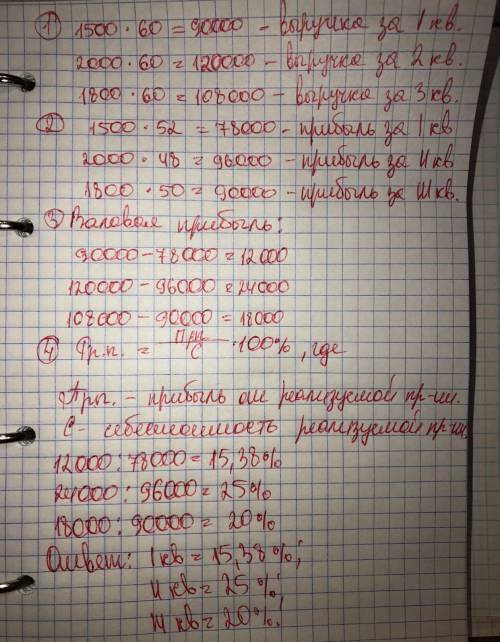 ① 1500 · 60 = 90000 - выручка за 1 кв.
2000 · 60 = 120000 - выручка за 2 кв.
1800 · 60 = 108000 - выручка за 3 кв.
② 1500 · 52 = 78000 - прибыль за I кв
2000 · 48 = 96000 - прибыль за II кв
1800 · 50 = 90000 - прибыль за III кв.
③ Валовая прибыль:
90000 - 78000 = 12000
120000 - 96000 = 24000
108000 - 90000 = 18000
④ Рр.п. = Прп/С · 100%, где
Прп. - прибыль от реализуемой пр-ии.
С - себестоимость реализуемой пр-ии.
12000 : 78000 = 15,38%
24000 : 96000 = 25%
18000 : 90000 = 20%
Ответ: I кв = 15,38%;
II кв = 25%;
III кв = 20%.